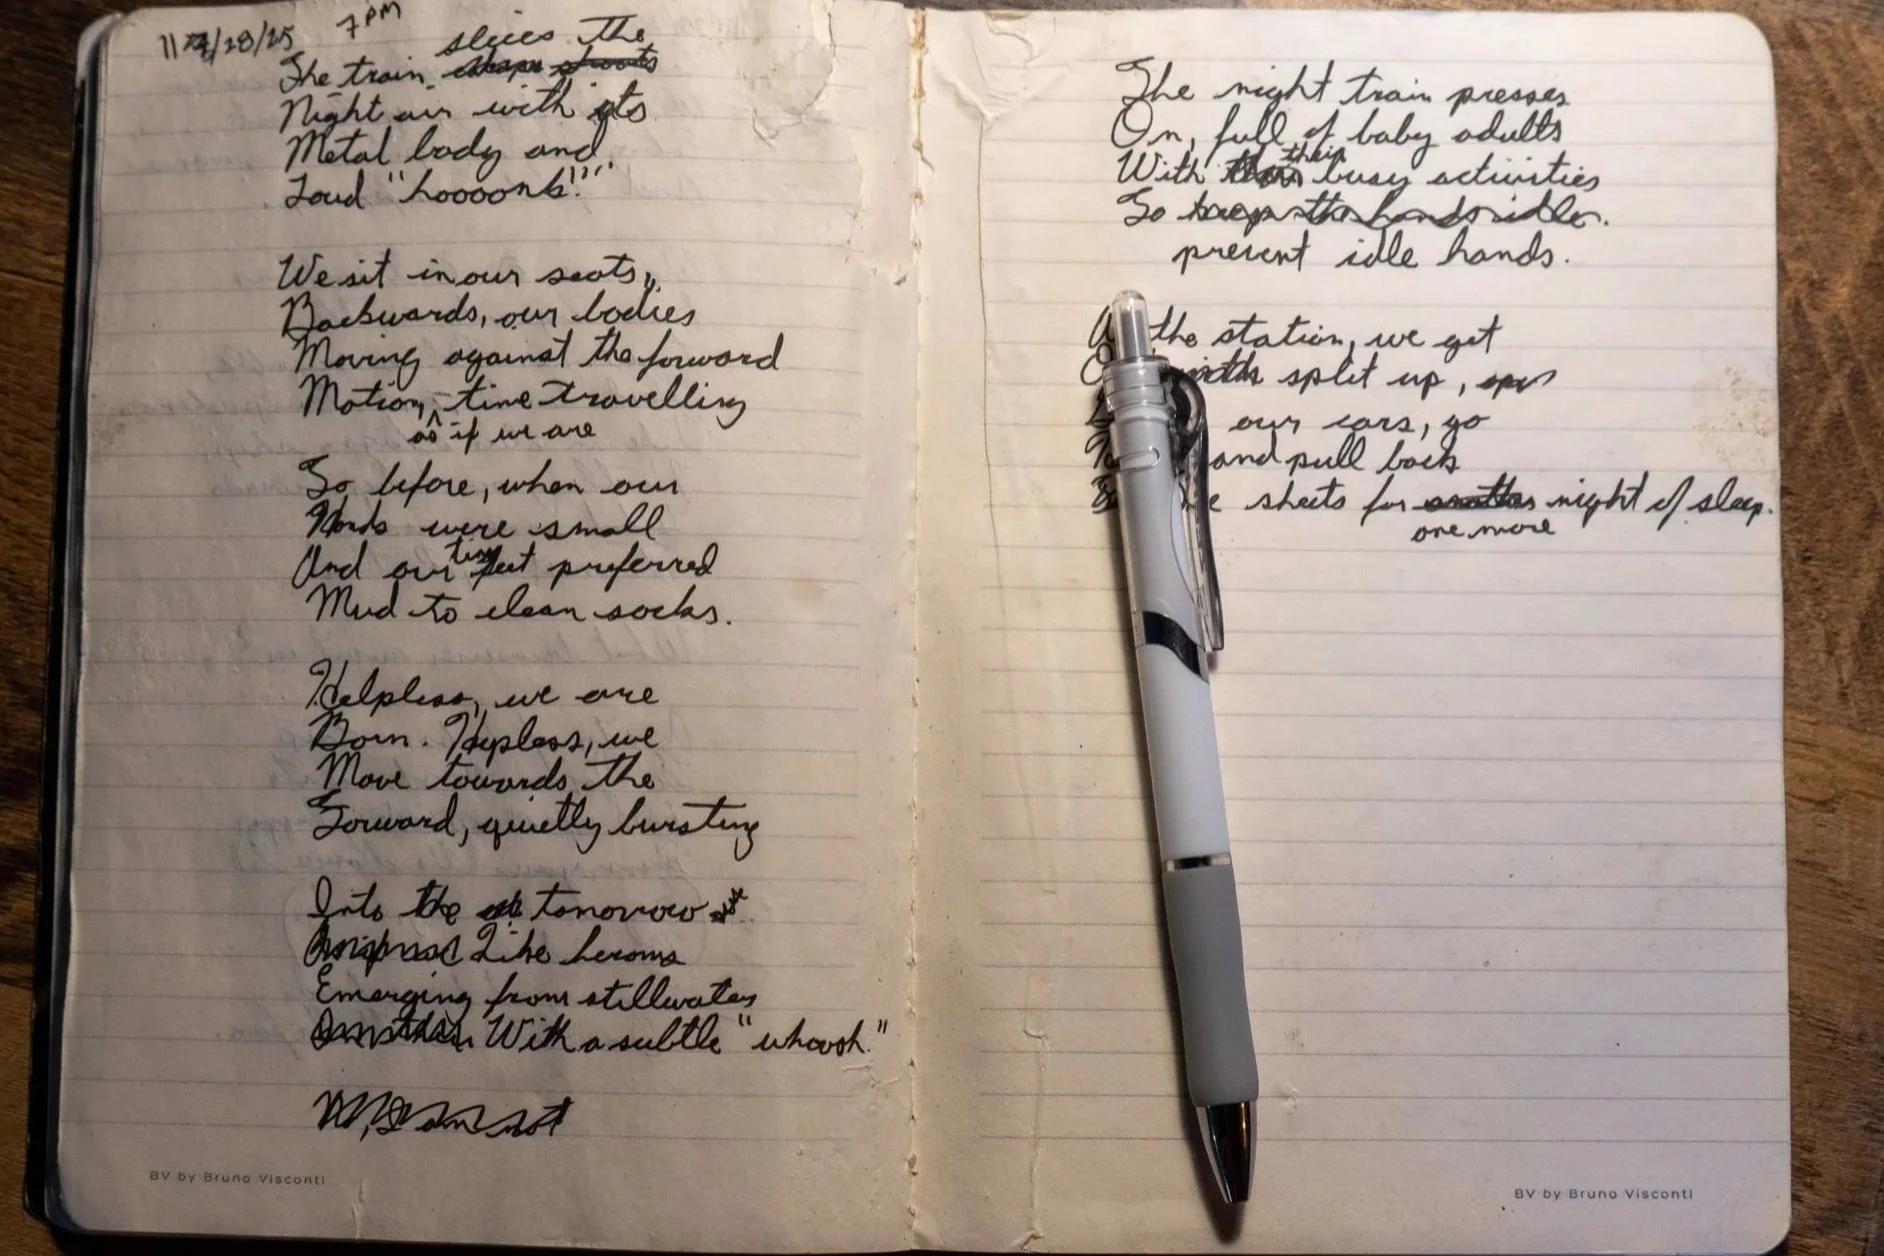 11/28/25 7 PM
The train slices the
Night air with its
Metal body and
Loud "hoooonk!"
We sit in our seats,
Backwards, our bodies
Moving against the forward
Motion, as if we are time travelling
To before, when our
Hands were small
And our tiny feet preferred
Mud to clean socks.
Helpless, we are
Born. Helpless, we
Move towards the
Forward, quietly bursting
Into the tomorrow
Like herons
Emerging from stillwaters
With a subtle "whoosh."
BV by Bruno Visconti
The night train presses
On, full of baby adults
With their busy activities
To
prevent idle hands.
the station, we get
split up,
our cars, go
and pull back
sheets for one more night of sleep.
BV by Bruno Visconti